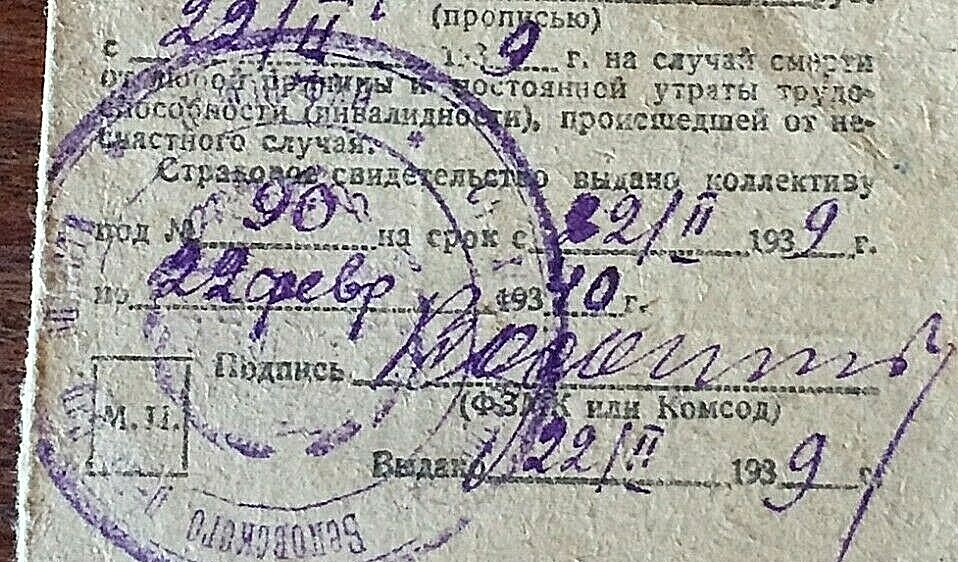 (прописью)
с 22/II 1939 г. на случай смерти
от любой причины и постоянной утраты трудо-
способности (инвалидности), происшедшей от не-
счастного случая.
Страховое свидетельство выдано коллективу
под № 90 на срок с 22/II 1939 г.
по 22 февр 1940 г.
Подпись
(ФЗМК или Комсод)
М. П.
Выдано 22/II 1939 г.
Бековского